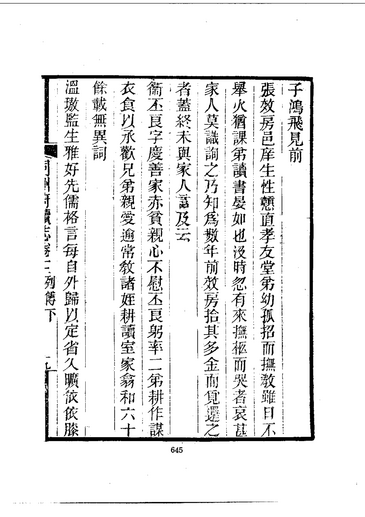 子鴻飛見前
張效房邑庠生性戇直孝友堂弟幼孤招而撫教雖日不
舉火猶課弟讀書晏如也沒時忽有來撫柩而哭者哀甚
家人莫識詢之乃知為數年前效房拾其多金而覓還之
者蓋終未與家人言及云
衛丕良字慶善家赤貧親心不慰丕良躬率二弟耕作謀
衣食以承歡兄弟親愛逾常敎諸姪耕讀室家翕和六十
餘載無異詞
溫璈監生雅好先儒格言每自外歸以定省久曠故依依膝
同州府續志卷十二列傳下
九
645